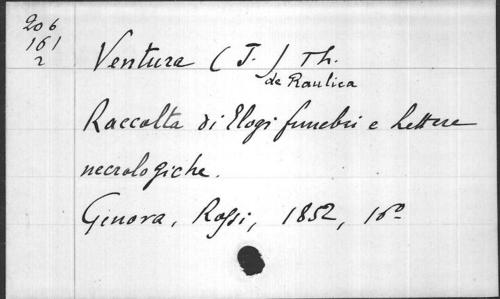 206
161
2
Ventura (J.) Th.
de Raulica
Raccolta di Elogi funebri e Lettere
necrologiche.
Genova, Rossi, 1852, 16°